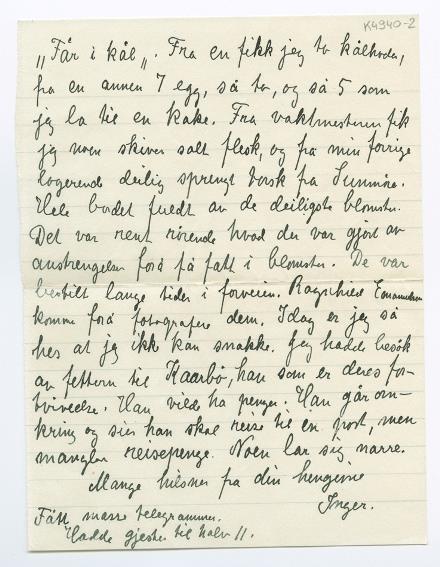 K4940-2
"Får i kål". Fra en fikk jeg to kålhoder,
fra en annen 7 egg, så to, og så 5 som
jeg la til en kake. Fra vaktmesteren fik
jeg noen skiver salt flesk, og fra min forrige
logerende deilig sprengt torsk fra Sunmøre.
Hele bordet fuldt av de deiligste blomster.
Det var rent rørende hvad der var gjort av
anstrengelser forå få fatt i blomster. De var
bestilt lange tider i forveien. Ragnhild
komme forå fotografere dem. Idag er jeg så
hes at jeg ikk kan snakke. Jeg hadde besøk
av fetteren til Kaarbö, han som er deres for-
tvivelse. Han vilde ha penger. Han går om-
kring og sier han skal reise til en post, men
mangler reisepenge. Noen lar sig narre.
Mange hilsner fra din hengivne
Inger.
Fått masse telegrammer.
Hadde gjester til halv 11.